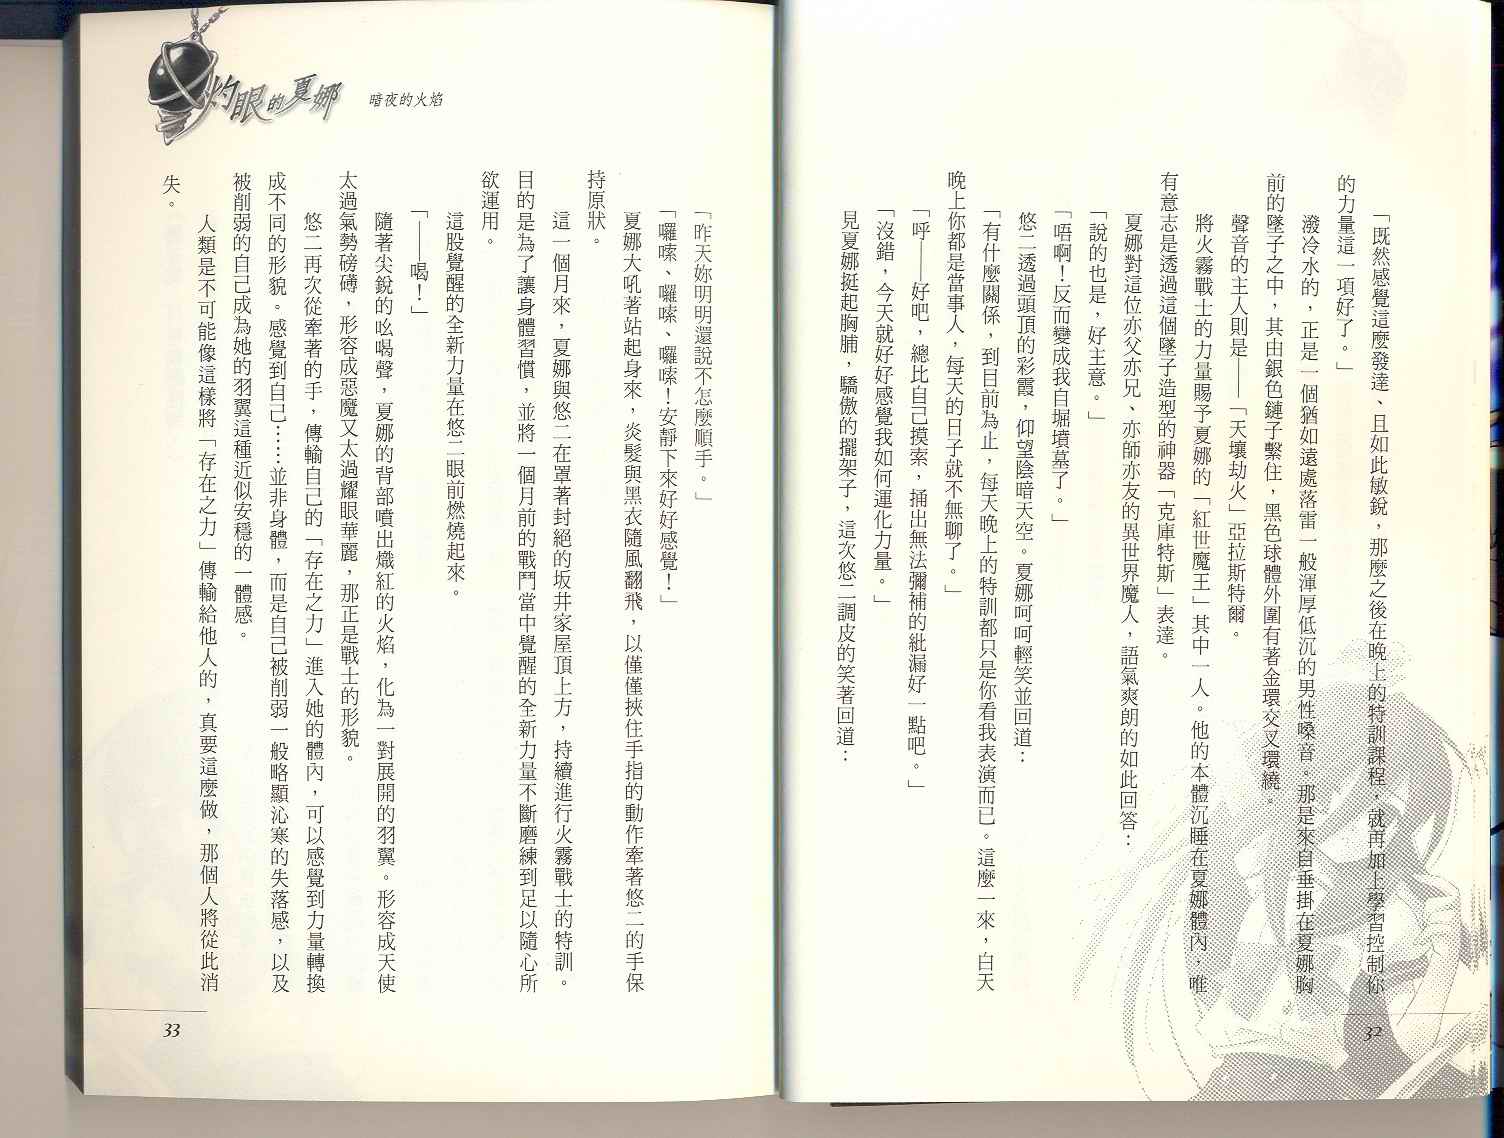 「既然感覺這麼發達、且如此敏銳，那麼之後在晚上的特訓課程，就再加上學習控制你
的力量這一項好了。」
潑冷水的，正是一個猶如遠處落雷一般渾厚低沉的男性嗓音。那是來自垂掛在夏娜胸
前的墜子之中，其由銀色鏈子繫住，黑色球體外圍有著金環交叉環繞。
聲音的主人則是——「天壤劫火」亞拉斯特爾。
將火霧戰士的力量賜予夏娜的「紅世魔王」其中一人。他的本體沉睡在夏娜體內，唯
有意志是透過這個墜子造型的神器「克庫特斯」表達。
夏娜對這位亦父亦兄、亦師亦友的異世界魔人，語氣爽朗的如此回答：
「說的也是，好主意。」
「唔啊！反而變成我自堀墳墓了。」
悠二透過頭頂的彩霞，仰望陰暗天空。夏娜呵呵輕笑並回道：
「有什麼關係，到目前為止，每天晚上的特訓都只是你看我表演而已。這麼一來，白天
晚上你都是當事人，每天的日子就不無聊了。」
「呼——好吧，總比自己摸索，捅出無法彌補的紕漏好一點吧。」
「沒錯，今天就好好感覺我如何運化力量。」
見夏娜挺起胸脯，驕傲的擺架子，這次悠二調皮的笑著回道：
32
灼眼的夏娜
暗夜的火焰
「昨天妳明明還說不怎麼順手。」
「囉嗦、囉嗦、囉嗦！安靜下來好好感覺！」
夏娜大吼著站起身來，炎髮與黑衣隨風翻飛，以僅僅挾住手指的動作牽著悠二的手保
持原狀。
這一個月來，夏娜與悠二在罩著封絕的坂井家屋頂上方，持續進行火霧戰士的特訓。
目的是為了讓身體習慣，並將一個月前的戰鬥當中覺醒的全新力量不斷磨練到足以隨心所
欲運用。
這股覺醒的全新力量在悠二眼前燃燒起來。
「——喝！」
隨著尖銳的吆喝聲，夏娜的背部噴出熾紅的火焰，化為一對展開的羽翼。形容成天使
太過氣勢磅礡，形容成惡魔又太過耀眼華麗，那正是戰士的形貌。
悠二再次從牽著的手，傳輸自己的「存在之力」進入她的體內，可以感覺到力量轉換
成不同的形貌。感覺到自己……並非身體，而是自己被削弱一般略顯沁寒的失落感，以及
被削弱的自己成為她的羽翼這種近似安穩的一體感。
人類是不可能像這樣將「存在之力」傳輸給他人的，真要這麼做，那個人將從此消
失。
33